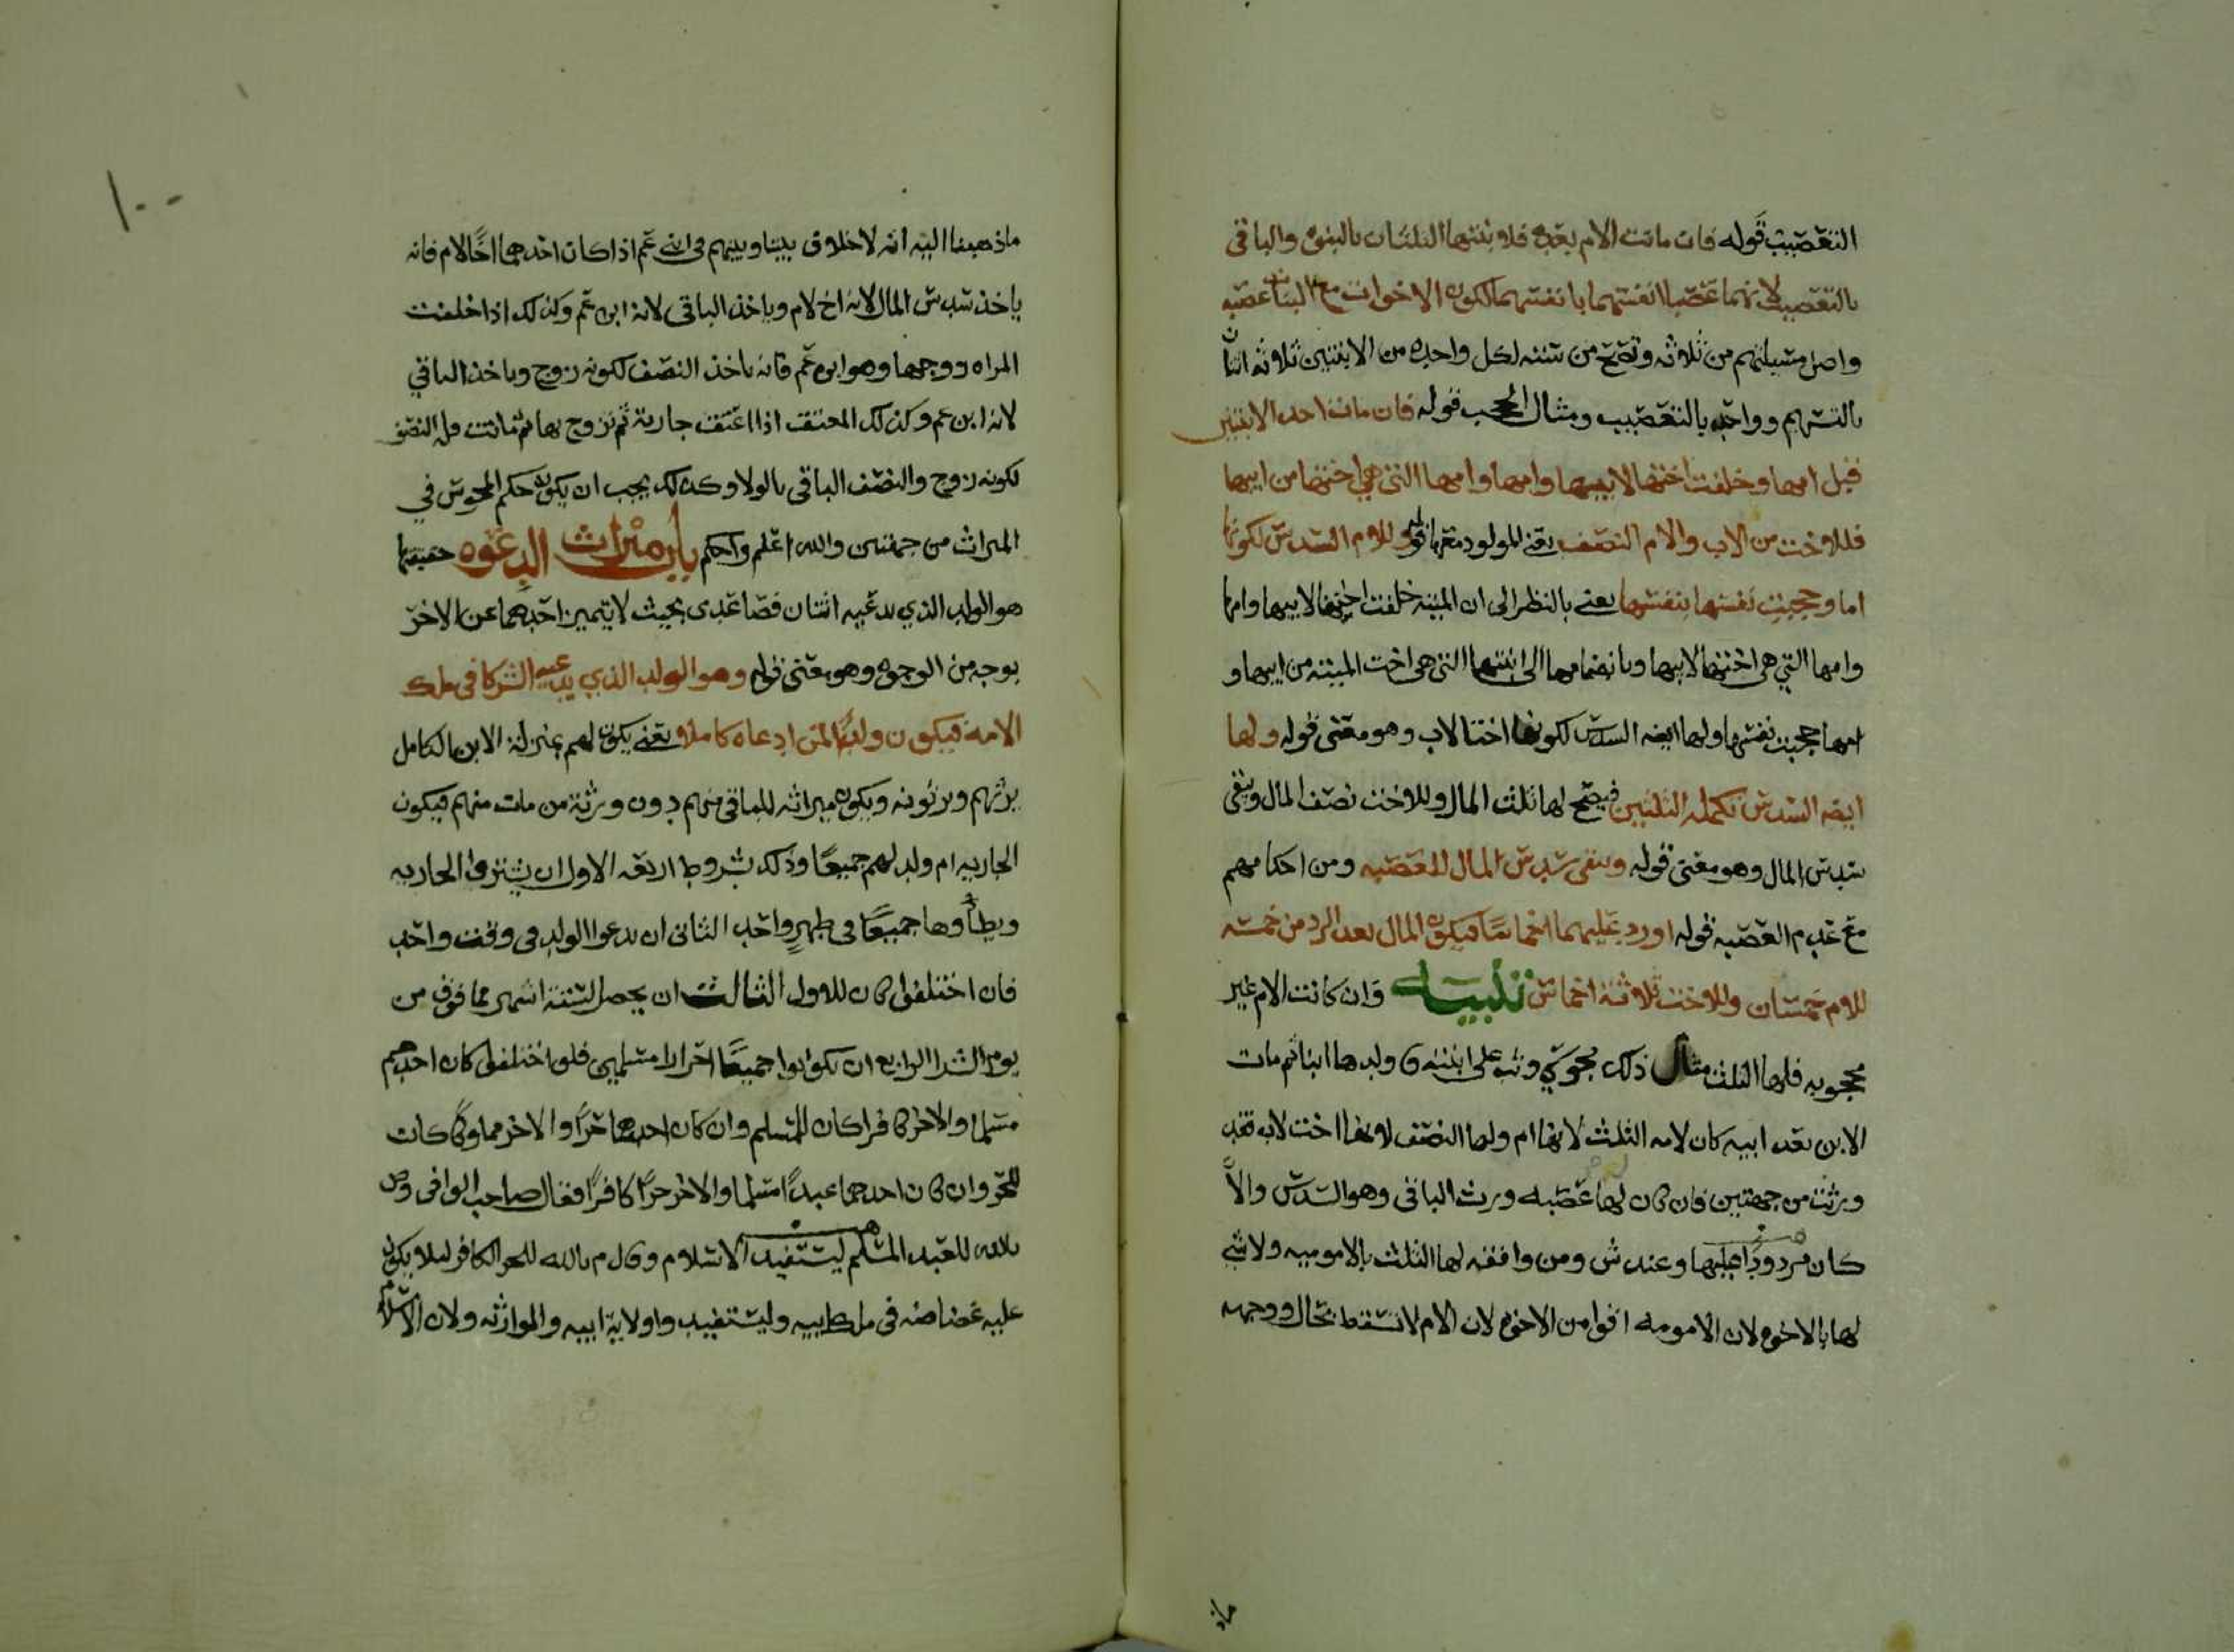 التعصيب قوله فان ماتت الام بعده فلابنتها الثلثان بالبنوه والباقي
بالتعصيب لانهما عصبا انفسهما بانفسهما لكون الاخوات مع البنات عصبه
واصل مسيلتهم من ثلاثه وتصح من سته لكل واحده من الابنتين ثلاثه اثنان
بالتسهيم وواحد بالتعصيب ومثال الحجب قوله فان مات احد الابنتين
قبل امها وخلفت اختها لابيها وامها وامها التي هي اختها من ابيها
فللاخت من الاب والام النصف يعني المولود معها قوله وللام السدس لكونها
اما وحجبت نفسها بنفسها يعني بالنظر الى ان الميته خلفت اختها لابيها وامها
وامها التي هي اختها لابيها وبانضمامها الى ابنتها التي هي اخت الميته من ابيها و
امها حجبت نفسها ولها ايضه السدس لكونها اختا لاب وهو معنى قوله ولها
ايضه السدس تكمله الثلثين فيصح لها ثلث المال وللاخت نصف المال ويبقى
سدس المال وهو معنى قوله ويبقى سدس المال للعصبه ومن احكامهم
مع عدم العصبه قوله او رد عليهما اخماسا فيكون المال بعد الرد من خمسه
للام خمسان وللاخت ثلاثة اخماس تنبيه وان كانت الام غير
محجوبه فلها الثلث مثال ذلك مجوسي وثب على ابنته فولدها ابنا ثم مات
الابن بعد ابيه كان لامه الثلث لانها ام ولها النصف لانها اخت لاب فقد
ورثت من جهتين فان كان لها عصبه ورث الباقي وهو السدس والا
كان مردودا عليها وعند ش ومن وافقه لها الثلث بالاموميه ولا شي
لها بالاخوه لان الامومه اقوا من الاخوه لان الام لا تسقط بحال ووجهه
ماذ
١٠٠
ماذهبنا اليه انه لا خلاف بيننا وبينهم في ابني عم اذا كان احدهما اخا لام فانه
ياخذ سدس المال لانه اخ لام وياخذ الباقي لانه ابن عم وكذلك اذا خلفت
المراه زوجها وهو ابن عم فانه ياخذ النصف لكونه زوج وياخذ الباقي
لانه ابن عم وكذلك المعتق اذا اعتق جارية ثم تزوج بها ثم ماتت فله النصف
لكونه زوج والنصف الباقي بالولا وكذلك يجب ان يكون حكم المجوس في
الميراث من جهتين والله اعلم واحكم باب ميراث الدعوه حقيقتها
هو الولد الذي يدعيه اثنان فصاعدى بحيث لا يتميز احدهما عن الاخر
بوجه من الوجوه وهو معنى قوله وهو الولد الذي يدعيه الشركا في ملك
الامه فيكون ولدا لمن ادعاه كاملا يعني يكون لهم بمنزلة الابن الكامل
يرثهم ويرثونه ويكون ميراثه للباقي منهم دون ورثة من مات منهم فيكون
الجاريه ام ولد لهم جميعا وذلك بشروط اربعه الاول ان يشتروا الجاريه
ويطأوها جميعا في طهر واحد الثاني ان يدعوا الولد في وقت واحد
فان اختلفوا كان للاول الثالث ان يحصل لستة اشهر مما فوق من
يوم الشرا الرابع ان يكونوا جميعا احرارا مسلمين فلو اختلفوا كان احدهم
مسلما والاخر كافرا كان للمسلم وان كان احدهما حرا والاخر مملوكا كان
للحر وان كان احدهما عبدا مسلما والاخر حرا كافرا فقال صاحب الوافي و
بالله للعبد المسلم ليستفيد الاسلام وقال م بالله للحر الكافر ليلا يكون
عليه غضاضه في ملك ابيه وليستفيد ولاية ابيه والموارثه ولان الاسلام